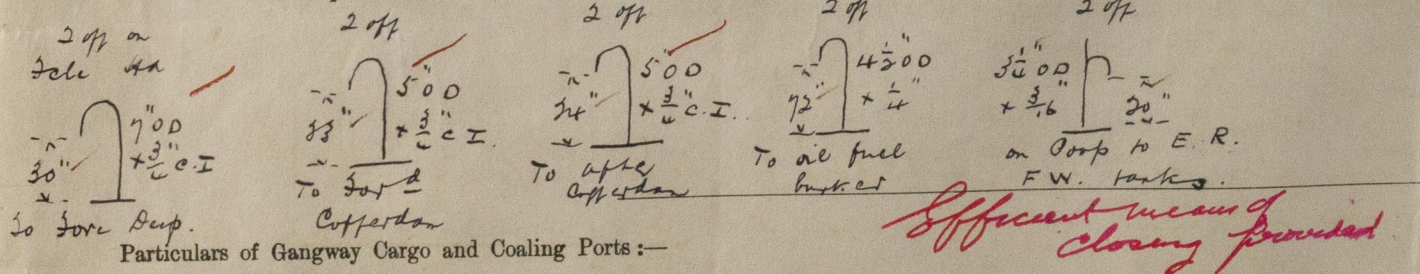 2 off on
Fcle Hd
30"
7" OD
x 3/4" C.I
To Fore Deep.
2 off
33"
5" OD
x 3/4" C.I.
To For'd
Cofferdam
2 off
34"
5" OD
x 3/4" C.I.
To after
Cofferdam
2 off
72"
4 1/2" OD
x 1/4"
To oil fuel
bunker
2 off
3 1/4" OD
x 3/16"
30"
on Poop to E.R.
F.W. tanks.
Efficient means of
closing provided
Particulars of Gangway Cargo and Coaling Ports :—